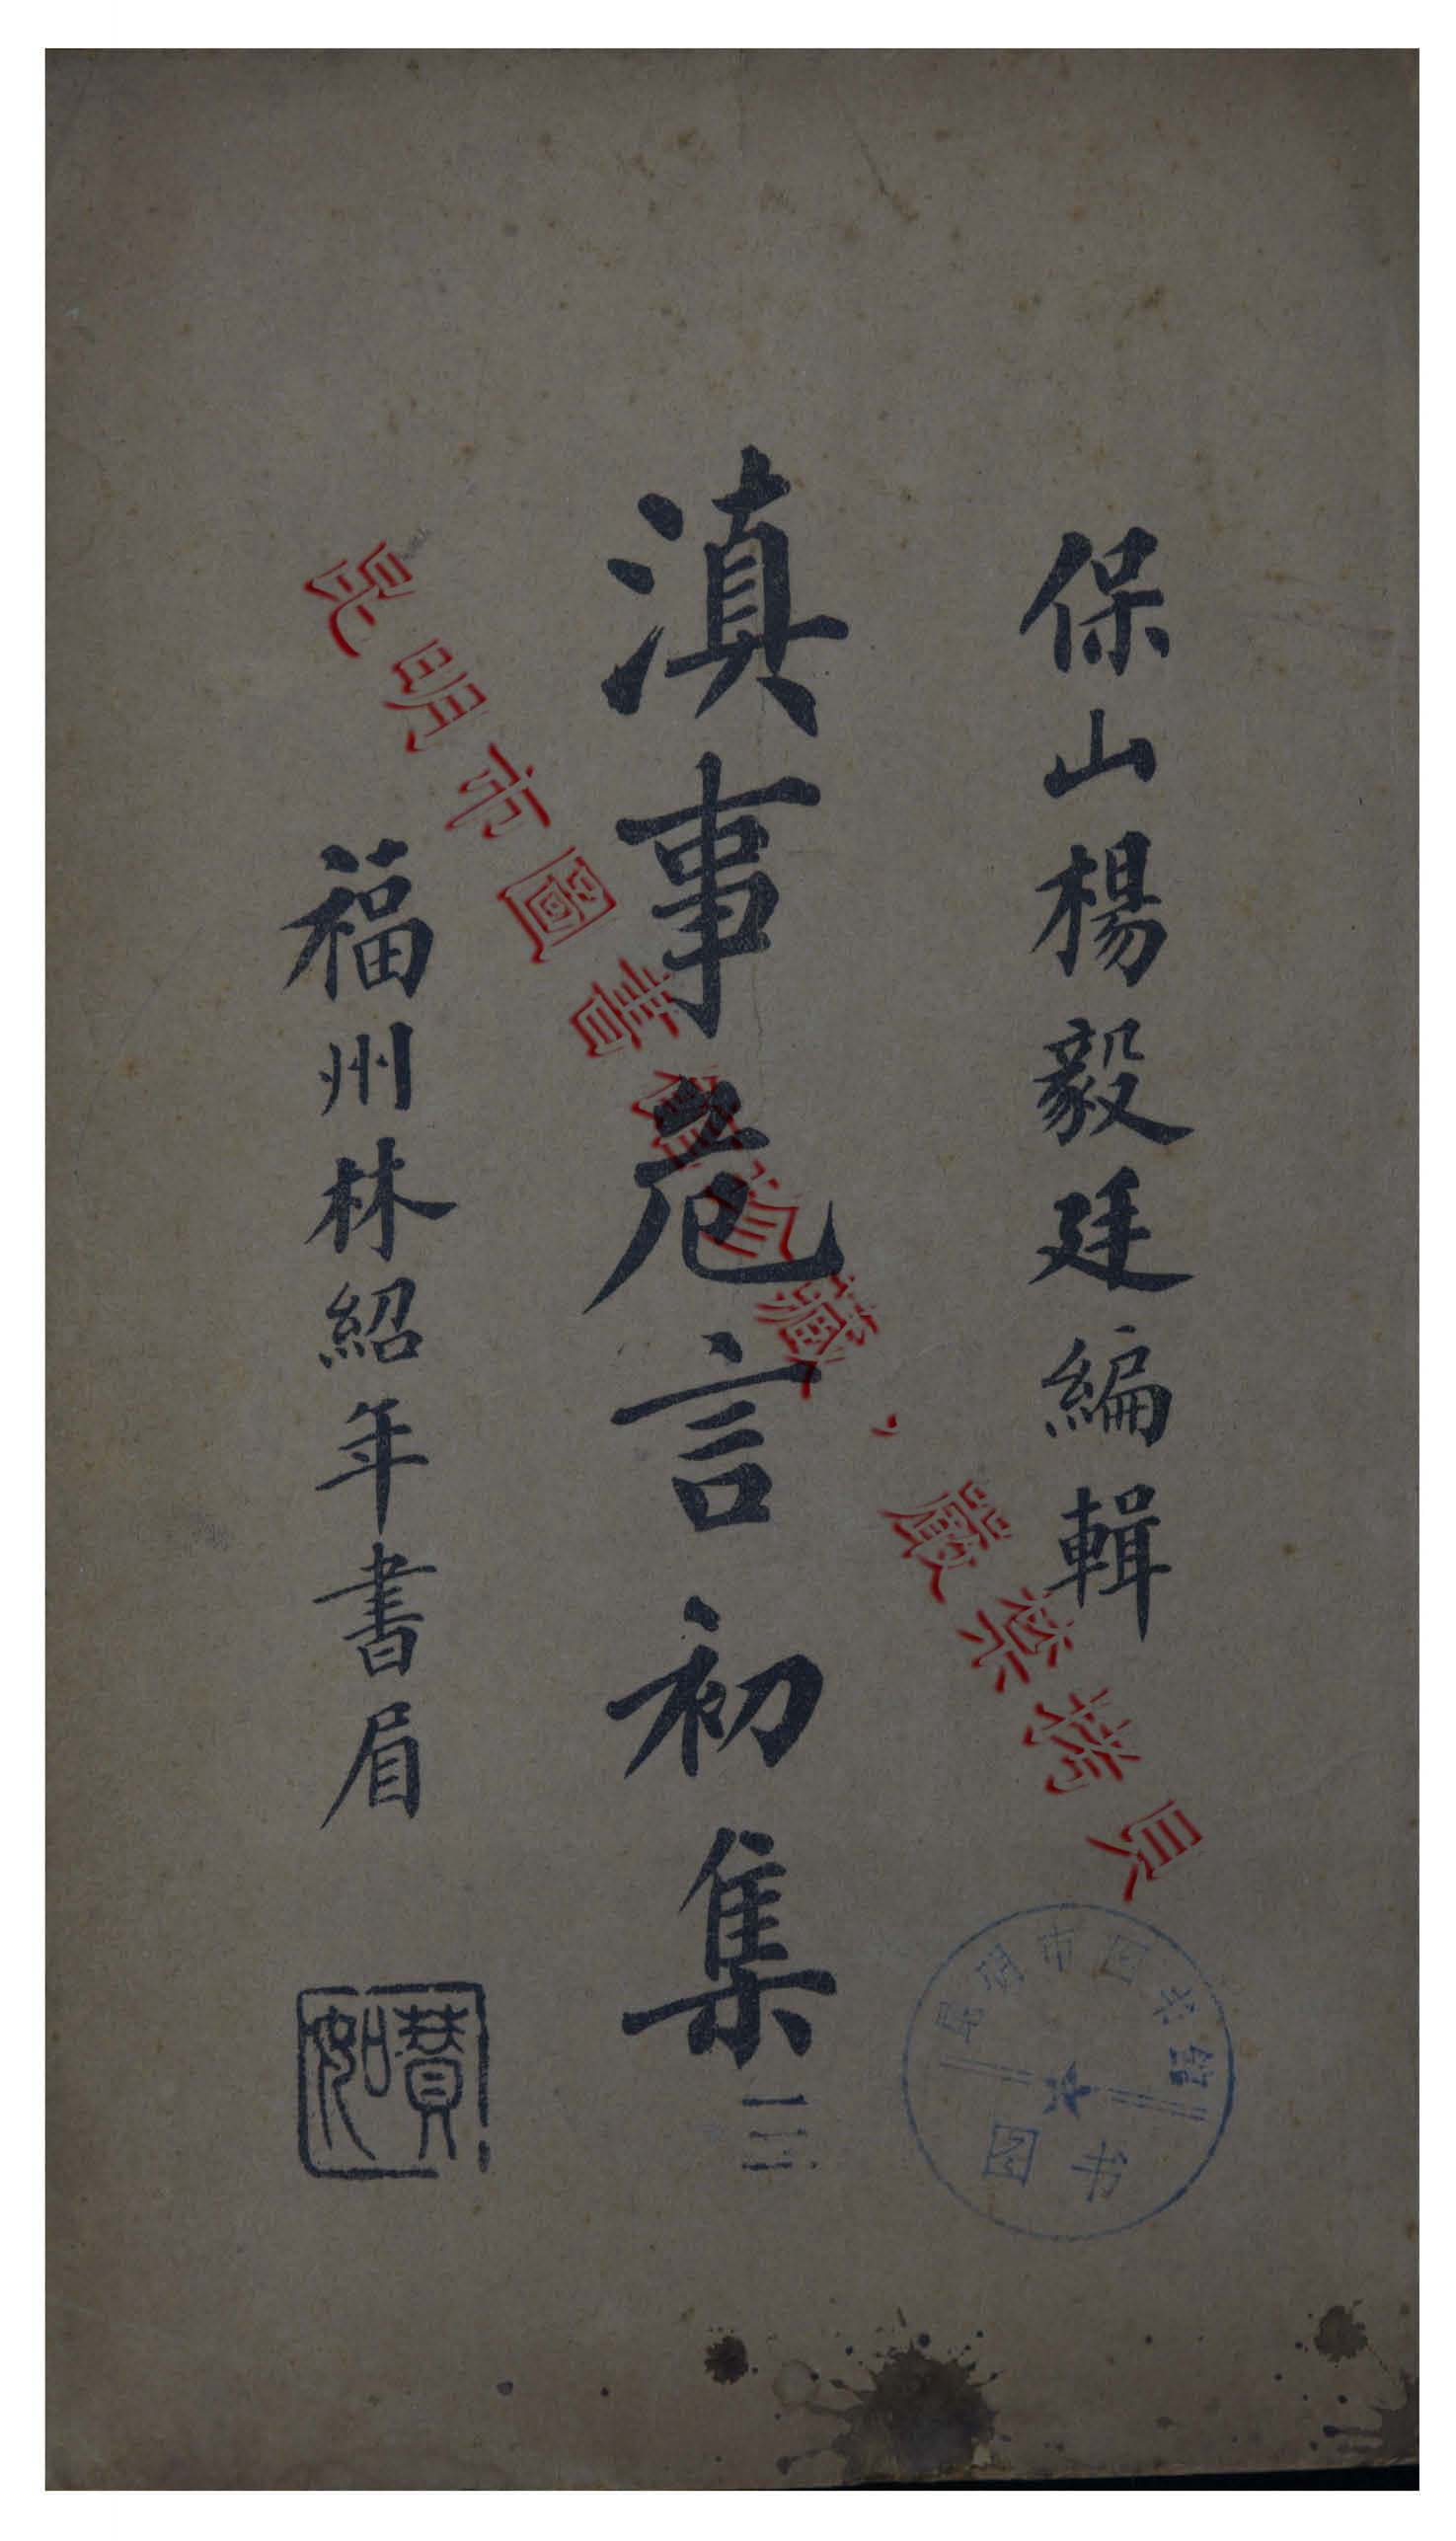 保山楊毅廷編輯
滇事危言初集
三
福州林紹年書眉
昆明市圖書館館藏，嚴禁拷貝
昆明市图书馆
图书